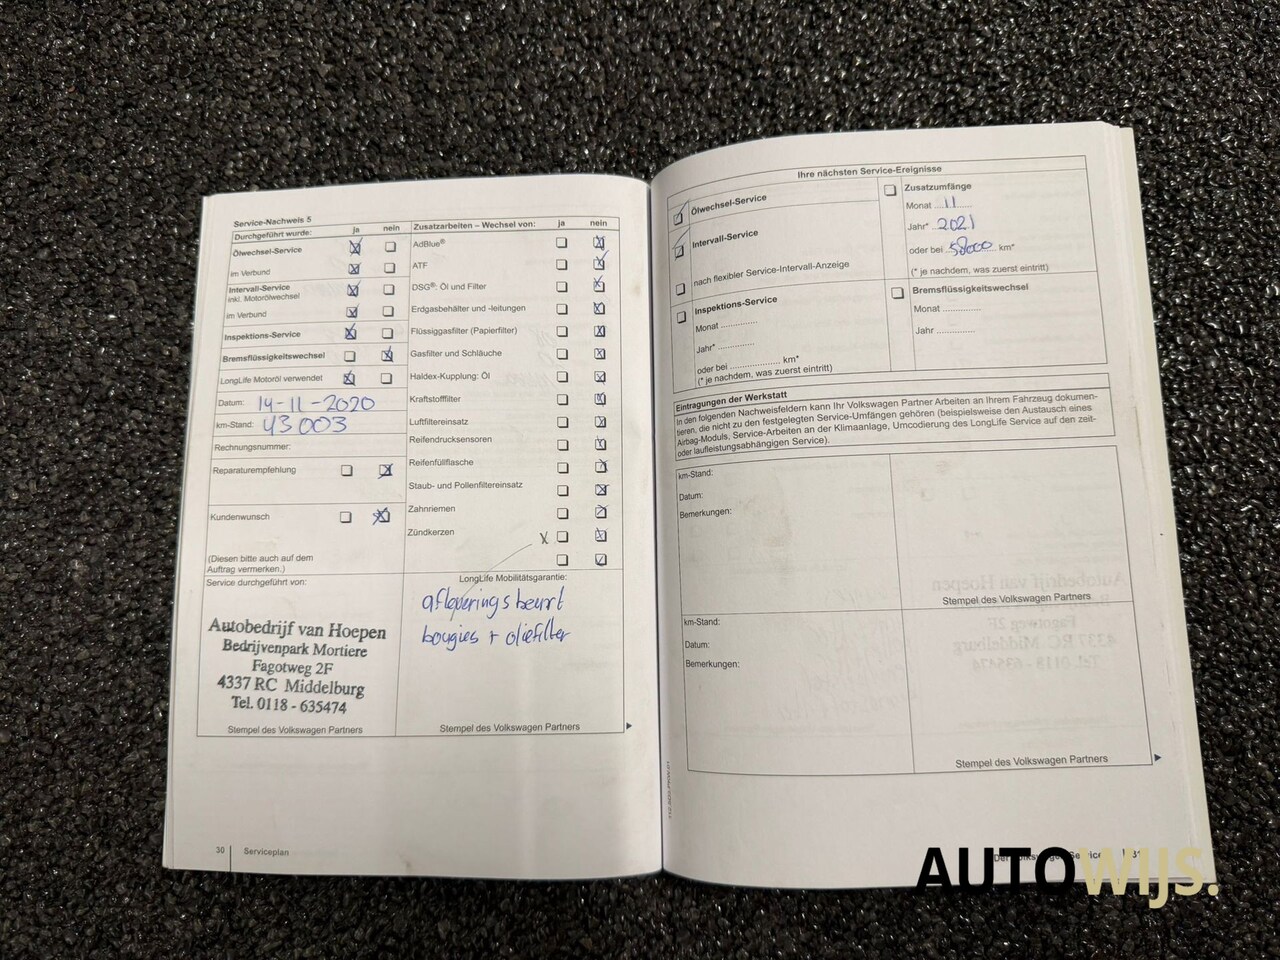 Service-Nachweis 5
Durchgeführt wurde: ja nein
Ölwechsel-Service
im Verbund
Intervall-Service
inkl. Motorölwechsel
im Verbund
Inspektions-Service
Bremsflüssigkeitswechsel
LongLife Motoröl verwendet
Datum: 14-11-2020
km-Stand: 43003
Rechnungsnummer:
Reparaturempfehlung
Kundenwunsch
(Diesen bitte auch auf dem
Auftrag vermerken.)
Service durchgeführt von:
Autobedrijf van Hoepen
Bedrijvenpark Mortiere
Fagotweg 2F
4337 RC Middelburg
Tel. 0118 - 635474
Stempel des Volkswagen Partners
Zusatzarbeiten – Wechsel von: ja nein
AdBlue®
ATF
DSG®: Öl und Filter
Erdgasbehälter und -leitungen
Flüssiggasfilter (Papierfilter)
Gasfilter und Schläuche
Haldex-Kupplung: Öl
Kraftstofffilter
Luftfiltereinsatz
Reifendrucksensoren
Reifenfüllflasche
Staub- und Pollenfiltereinsatz
Zahnriemen
Zündkerzen X
LongLife Mobilitätsgarantie:
afleveringsbeurt
bougies + oliefilter
Stempel des Volkswagen Partners
30 Serviceplan
Ihre nächsten Service-Ereignisse
Ölwechsel-Service
Intervall-Service
nach flexibler Service-Intervall-Anzeige
Inspektions-Service
Monat ..............
Jahr* ..............
oder bei .................... km*
(* je nachdem, was zuerst eintritt)
Zusatzumfänge
Monat 11
Jahr* 2021
oder bei 58000 km*
(* je nachdem, was zuerst eintritt)
Bremsflüssigkeitswechsel
Monat ..............
Jahr ..............
Eintragungen der Werkstatt
In den folgenden Nachweisfeldern kann Ihr Volkswagen Partner Arbeiten an Ihrem Fahrzeug dokumen-
tieren, die nicht zu den festgelegten Service-Umfängen gehören (beispielsweise den Austausch eines
Airbag-Moduls, Service-Arbeiten an der Klimaanlage, Umcodierung des LongLife Service auf den zeit-
oder laufleistungsabhängigen Service).
km-Stand:
Datum:
Bemerkungen:
Stempel des Volkswagen Partners
km-Stand:
Datum:
Bemerkungen:
Stempel des Volkswagen Partners
AUTOWIJS.